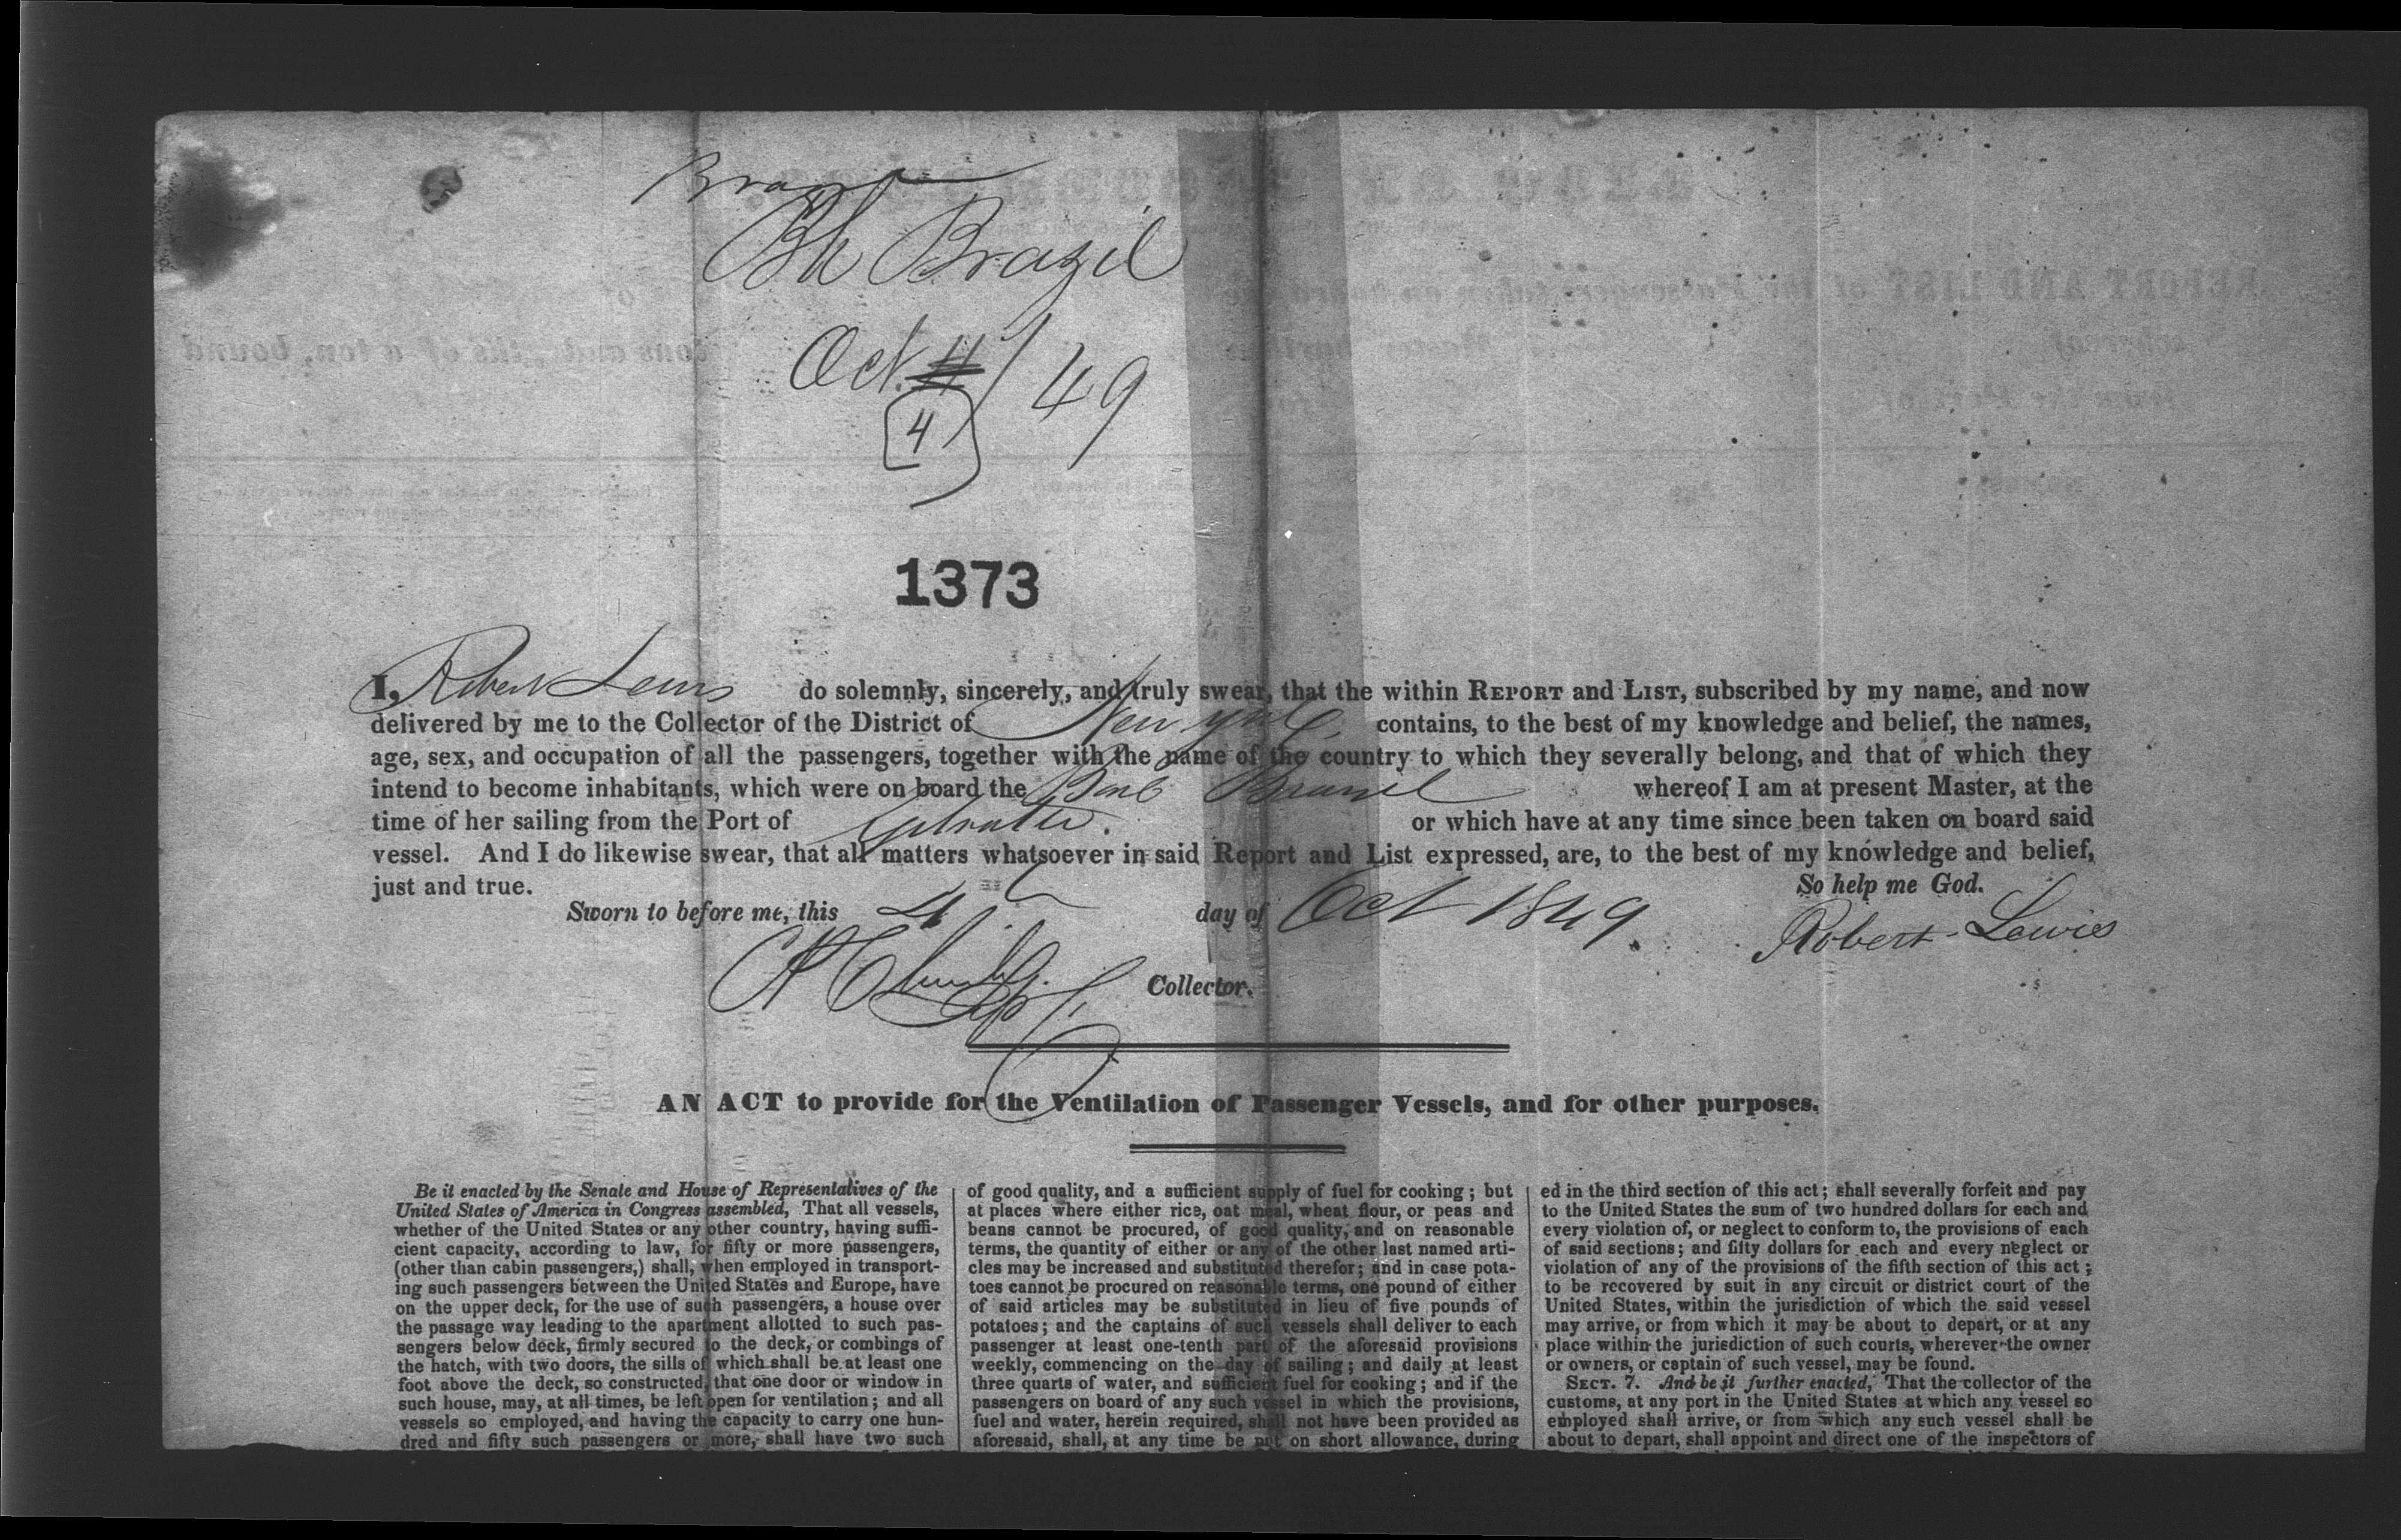 Bk Brazil
Oct. 11 / 49
4
1373
I, Robert Lewis do solemnly, sincerely, and truly swear, that the within REPORT and LIST, subscribed by my name, and now
delivered by me to the Collector of the District of New York contains, to the best of my knowledge and belief, the names,
age, sex, and occupation of all the passengers, together with the name of the country to which they severally belong, and that of which they
intend to become inhabitants, which were on board the Bark whereof I am at present Master, at the
time of her sailing from the Port of or which have at any time since been taken on board said
vessel. And I do likewise swear, that all matters whatsoever in said Report and List expressed, are, to the best of my knowledge and belief,
just and true. So help me God.
Sworn to before me, this 4 day of Oct 1849. Robert Lewis
Collector.
AN ACT to provide for the Ventilation of Passenger Vessels, and for other purposes.
Be it enacted by the Senate and House of Representatives of the
United States of America in Congress assembled, That all vessels,
whether of the United States or any other country, having suffi-
cient capacity, according to law, for fifty or more passengers,
(other than cabin passengers,) shall, when employed in transport-
ing such passengers between the United States and Europe, have
on the upper deck, for the use of such passengers, a house over
the passage way leading to the apartment allotted to such pas-
sengers below deck, firmly secured to the deck, or combings of
the hatch, with two doors, the sills of which shall be at least one
foot above the deck, so constructed, that one door or window in
such house, may, at all times, be left open for ventilation; and all
vessels so employed, and having the capacity to carry one hun-
dred and fifty such passengers or more, shall have two such
of good quality, and a sufficient supply of fuel for cooking; but
at places where either rice, oat meal, wheat flour, or peas and
beans cannot be procured, of good quality, and on reasonable
terms, the quantity of either or any of the other last named arti-
cles may be increased and substituted therefor; and in case pota-
toes cannot be procured on reasonable terms, one pound of either
of said articles may be substituted in lieu of five pounds of
potatoes; and the captains of such vessels shall deliver to each
passenger at least one-tenth part of the aforesaid provisions
weekly, commencing on the day of sailing; and daily at least
three quarts of water, and sufficient fuel for cooking; and if the
passengers on board of any such vessel in which the provisions,
fuel and water, herein required, shall not have been provided as
aforesaid, shall, at any time be not on short allowance, during
ed in the third section of this act; shall severally forfeit and pay
to the United States the sum of two hundred dollars for each and
every violation of, or neglect to conform to, the provisions of each
of said sections; and fifty dollars for each and every neglect or
violation of any of the provisions of the fifth section of this act;
to be recovered by suit in any circuit or district court of the
United States, within the jurisdiction of which the said vessel
may arrive, or from which it may be about to depart, or at any
place within the jurisdiction of such courts, wherever the owner
or owners, or captain of such vessel, may be found.
SECT. 7. And be it further enacted, That the collector of the
customs, at any port in the United States at which any vessel so
employed shall arrive, or from which any such vessel shall be
about to depart, shall appoint and direct one of the inspectors of